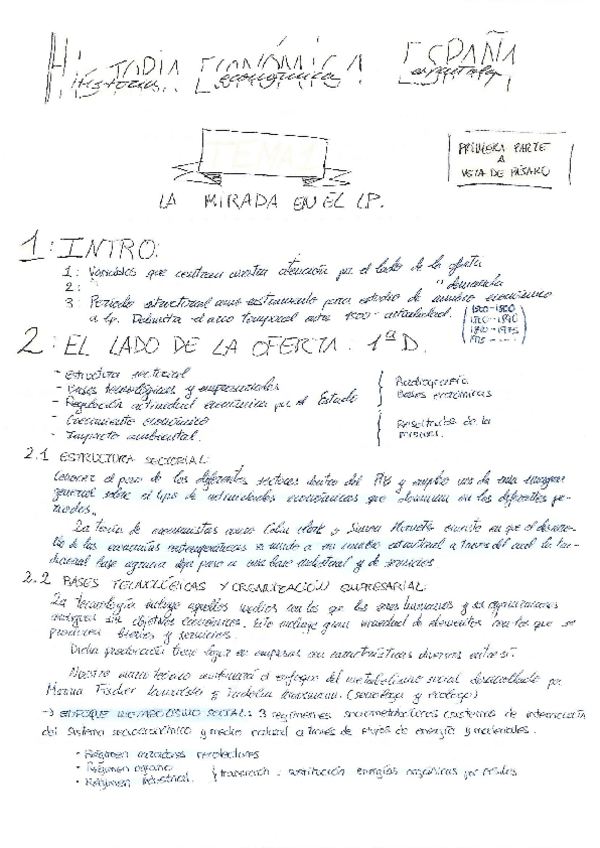 HISTORIA ECONÓMICA ESPAÑA
TEMA 1
PRIMERA PARTE
A
VISTA DE PÁJARO
LA MIRADA EN EL LP.
1: INTRO:
1: Variables que centraran nuestra atención por el lado de la oferta
2: " " demanda
3: Periodo estructural como instrumento para estudio de cambio económico
a lp. Delimita el arco temporal entre 1500 - actualidad.
2: EL LADO DE LA OFERTA: 1ª D.
- Estructura sectorial
- Bases tecnológicas y empresariales
- Regulación actividad económica por el Estado
- Crecimiento económico
- Impacto ambiental.
Radiografía
Bases económicas
Resultados de la
2.1 ESTRUCTURA SECTORIAL:
Conocer el peso de los diferentes sectores dentro del PIB y empleo nos da una imagen
general sobre el tipo de actividades económicas que dominan en los diferentes pe-
riodos.
La teoría de economistas como Colin Clark y Simon Kuznets en que el desarro-
llo de las economías contemporáneas un cambio estructural a través del cual la tra-
dicional base agraria deja paso a una base industrial y de servicios
2.2 BASES TECNOLÓGICAS Y ORGANIZACIÓN EMPRESARIAL:
La tecnología incluye aquellos medios con los que los seres humanos y sus organizaciones
consiguen sus objetivos económicos. Esto incluye gran variedad de elementos con los que se
producen bienes y servicios.
Dicha producción tiene lugar en empresas con características diversas entre sí.
Nuestro marco teórico el enfoque del metabolismo social desarrollado por
Marina Fischer Kowalski y Fridolin Krausmann. (socióloga y ecólogo)
→ ENFOQUE METABOLISMO SOCIAL: 3 regímenes sociometabólicos (patrones de interacción
del sistema socioeconómico y medio natural a través de flujos de energía y materiales.
• Régimen cazadores recolectores
• Régimen agrario
• Régimen industrial. } transición: sustitución energías orgánicas por fósiles